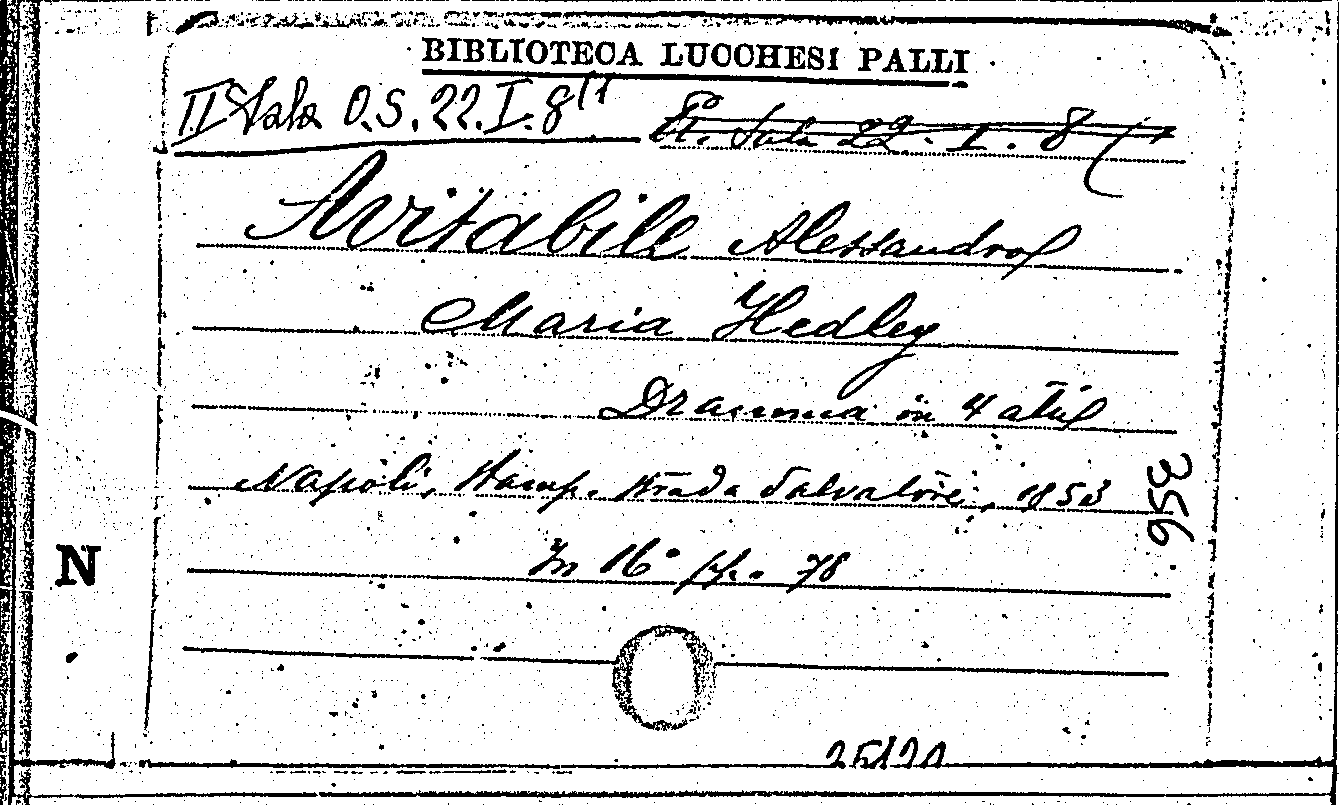 BIBLIOTECA LUCCHESI PALLI
II Sala O.S. 22. I. 8 11
Sala 22. I. 8
Avitabile Alessandro
Maria Hedley
Dramma in 4 atti
Napoli, Stamp. Strada Salvatore, 1853
In 16° pp. 78
356
N